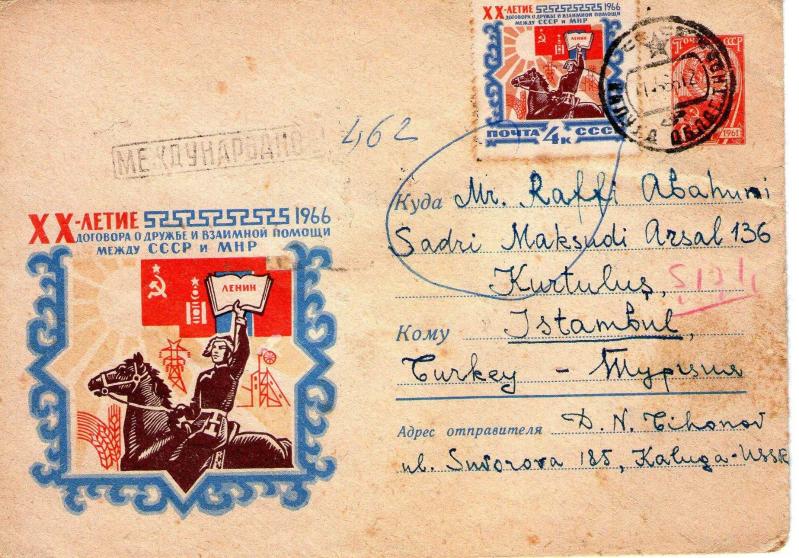 XX-ЛЕТИЕ 1966
ДОГОВОРА О ДРУЖБЕ И ВЗАИМНОЙ ПОМОЩИ
МЕЖДУ СССР и МНР
ЛЕНИН
ПОЧТА 4К СССР
ПОЧТА СССР
1961
КАЛУГА ОБЛПОЧТ
МЕЖДУНАРОДНО
462
XX-ЛЕТИЕ 1966
ДОГОВОРА О ДРУЖБЕ И ВЗАИМНОЙ ПОМОЩИ
МЕЖДУ СССР и МНР
ЛЕНИН
Куда Mr. Raffi Abahuni
Sadri Maksudi Arsal 136
Kurtuluş,
Кому Istambul,
Turkey - Турция
Адрес отправителя D. N. Tihonov
ul. Suvorova 185, Kaluga-USSR